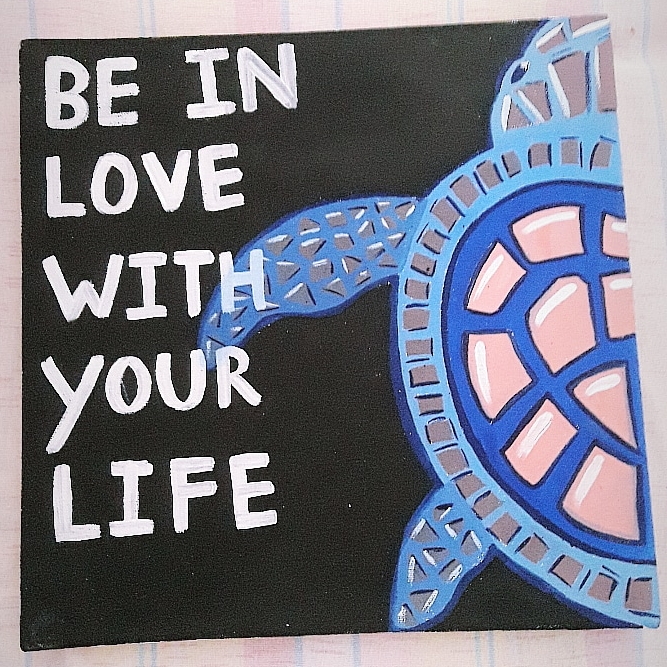 BE IN
LOVE
WITH
YOUR
LIFE